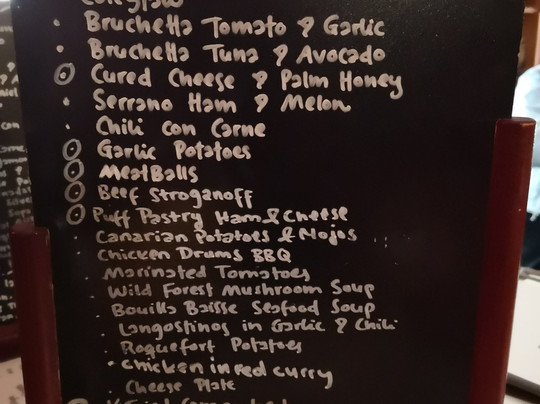 Bruchetta Tomato & Garlic
Bruchetta Tuna & Avocado
Cured Cheese & Palm Honey
Serrano Ham & Melon
Chili con Carne
Garlic Potatoes
MeatBalls
Beef Stroganoff
Puff Pastry Ham & Cheese
Canarian Potatoes & Mojos
Chicken Drums BBQ
Marinated Tomatoes
Wild Forest Mushroom Soup
Bouilla Baisse Seafood Soup
Langostinos in Garlic & Chili
Roquefort Potatoes
Chicken in red curry
Cheese Plate